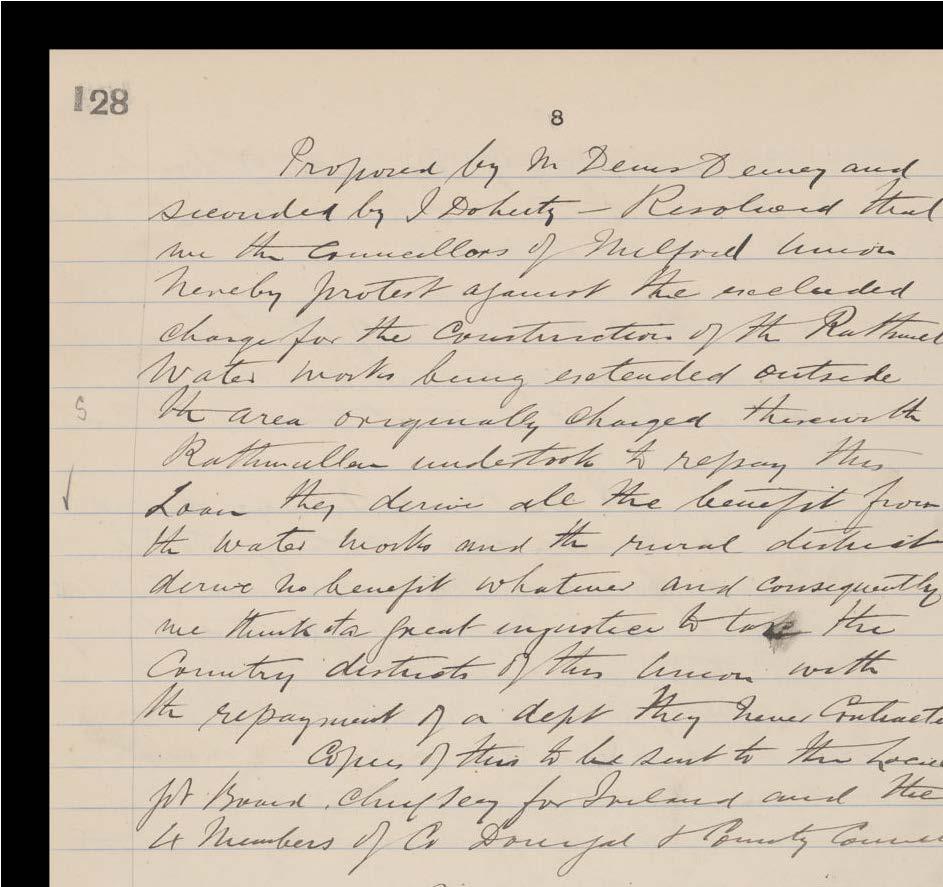 128
8
Proposed by Mr Denis Deeney and
seconded by J Doherty — Resolved that
we the Councellors of Milford Union
hereby protest against the excluded
charge for the Construction of the Rathmul
Water works being extended outside
S the area originally charged therewith
Rathmullen undertook to repay this
Loan they derive all the benefit from
the water works and the rural district
derive no benefit whatever and consequently
we think it a great injustice to tax the
Country districts of this Union with
the repayment of a dept they never Contracte
Copies of this to be sent to the Local
Gt Board, Chief Secy for Ireland and the
4 Members of Co Donegal & County Counc